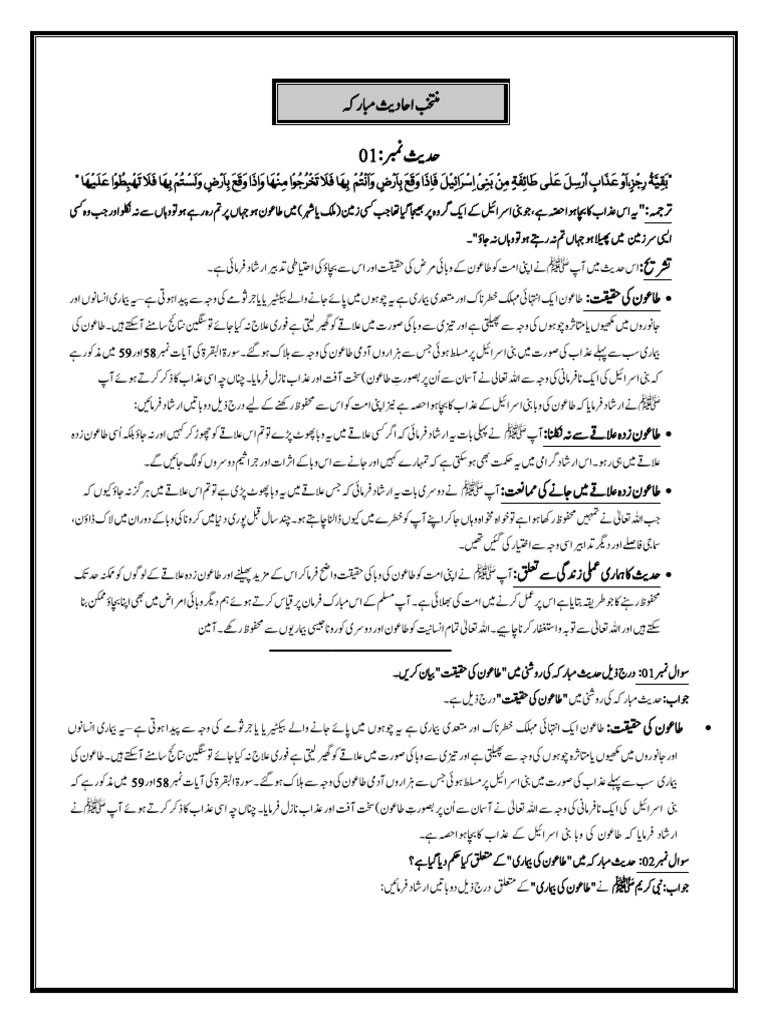 منتخب احادیث مبارکہ
حدیث نمبر: 01
"بَقِيَّةُ رِجْزٍ اَوْ عَذَابٍ اُرْسِلَ عَلٰی طَائِفَةٍ مِنْ بَنِیْ اِسْرَائِيْلَ فَاِذَا وَقَعَ بِاَرْضٍ وَاَنْتُمْ بِهَا فَلَا تَخْرُجُوْا مِنْهَا وَاِذَا وَقَعَ بِاَرْضٍ وَلَسْتُمْ بِهَا فَلَا تَهْبِطُوْا عَلَيْهَا"
ترجمہ: "یہ اس عذاب کا بچا ہوا حصہ ہے، جو بنی اسرائیل کے ایک گروہ پر بھیجا گیا تھا جب کسی زمین (ملک یا شہر) میں طاعون ہو جہاں پر تم رہ رہے ہو تو وہاں سے نہ نکلو اور جب وہ کسی
ایسی سرزمین میں پھیلا ہو جہاں تم نہ رہتے ہو تو وہاں نہ جاؤ"۔
تشریح: اس حدیث میں آپ ﷺ نے اپنی امت کو طاعون کے وبائی مرض کی حقیقت اور اس سے بچاؤ کی احتیاطی تدبیر ارشاد فرمائی ہے۔
• طاعون کی حقیقت: طاعون ایک انتہائی مہلک خطرناک اور متعدی بیماری ہے یہ چوہوں میں پائے جانے والے بیکٹیریا یا جرثومے کی وجہ سے پیدا ہوتی ہے – یہ بیماری انسانوں اور
جانوروں میں مکھیوں یا متاثرہ چوہوں کی وجہ سے پھیلتی ہے اور تیزی سے وبا کی صورت میں علاقے کو گھیر لیتی ہے فوری علاج نہ کیا جائے تو سنگین نتائج سامنے آسکتے ہیں۔ طاعون کی
بیماری سب سے پہلے عذاب کی صورت میں بنی اسرائیل پر مسلط ہوئی جس سے ہزاروں آدمی طاعون کی وجہ سے ہلاک ہو گئے۔ سورۃ البقرۃ کی آیات نمبر 58 اور 59 میں مذکور ہے
کہ بنی اسرائیل کی ایک نافرمانی کی وجہ سے اللہ تعالی نے آسمان سے اُن پر بصورتِ طاعون) سخت آفت اور عذاب نازل فرمایا۔ چناں چہ اسی عذاب کا ذکر کرتے ہوئے آپ
ﷺ نے ارشاد فرمایا کہ طاعون کی وبا بنی اسرائیل کے عذاب کا بچا ہوا حصہ ہے نیز اپنی امت کو اس سے محفوظ رکھنے کے لیے درج ذیل دو باتیں ارشاد فرمائیں:
• طاعون زدہ علاقے سے نہ نکلنا: آپ ﷺ نے پہلی بات یہ ارشاد فرمائی کہ اگر کسی علاقے میں یہ وبا پھوٹ پڑے تو تم اس علاقے کو چھوڑ کر کہیں اور نہ جاؤ بلکہ اُسی طاعون زدہ
علاقے میں ہی رہو۔ اس ارشاد گرامی میں یہ حکمت بھی ہو سکتی ہے کہ تمہارے کہیں اور جانے سے اس وبا کے اثرات اور جراثیم دوسروں کو لگ جائیں گے۔
• طاعون زدہ علاقے میں جانے کی ممانعت: آپ ﷺ نے دوسری بات یہ ارشاد فرمائی کہ جس علاقے میں یہ وبا پھوٹ پڑی ہے تو تم اس علاقے میں ہر گز نہ جاؤ کیوں کہ
جب اللہ تعالیٰ نے تمہیں محفوظ رکھا ہوا ہے تو خواہ مخواہ وہاں جا کر اپنے آپ کو خطرے میں کیوں ڈالنا چاہتے ہو۔ چند سال قبل پوری دنیا میں کرونا کی وبا کے دوران میں لاک ڈاؤن،
سماجی فاصلے اور دیگر تدابیر اسی وجہ سے اختیار کی گئیں تھیں۔
• حدیث کا ہماری عملی زندگی سے تعلق: آپ ﷺ نے اپنی امت کو طاعون کی وبا کی حقیقت واضح فرما کر اس کے مزید پھیلنے اور طاعون زدہ علاقے کے لوگوں کو ممکنہ حد تک
محفوظ رہنے کا جو طریقہ بتایا ہے اس پر عمل کرنے میں امت کی بھلائی ہے۔ آپ مسلم کے اس مبارک فرمان پر قیاس کرتے ہوئے ہم دیگر وبائی امراض میں بھی اپنا بچاؤ ممکن بنا
سکتے ہیں اور اللہ تعالیٰ سے توبہ و استغفار کرنا چاہیے۔ اللہ تعالیٰ تمام انسانیت کو طاعون اور دوسری کورونا جیسی بیماریوں سے محفوظ رکھے۔ آمین
سوال نمبر 01: درج ذیل حدیث مبارکہ کی روشنی میں "طاعون کی حقیقت" بیان کریں۔
جواب: حدیث مبارکہ کی روشنی میں "طاعون کی حقیقت" درج ذیل ہے۔
• طاعون کی حقیقت: طاعون ایک انتہائی مہلک خطرناک اور متعدی بیماری ہے یہ چوہوں میں پائے جانے والے بیکٹیریا یا جرثومے کی وجہ سے پیدا ہوتی ہے – یہ بیماری انسانوں
اور جانوروں میں مکھیوں یا متاثرہ چوہوں کی وجہ سے پھیلتی ہے اور تیزی سے وبا کی صورت میں علاقے کو گھیر لیتی ہے فوری علاج نہ کیا جائے تو سنگین نتائج سامنے آسکتے ہیں۔ طاعون کی
بیماری سب سے پہلے عذاب کی صورت میں بنی اسرائیل پر مسلط ہوئی جس سے ہزاروں آدمی طاعون کی وجہ سے ہلاک ہو گئے۔ سورۃ البقرۃ کی آیات نمبر 58 اور 59 میں مذکور ہے کہ
بنی اسرائیل کی ایک نافرمانی کی وجہ سے اللہ تعالیٰ نے آسمان سے اُن پر بصورتِ طاعون) سخت آفت اور عذاب نازل فرمایا۔ چناں چہ اسی عذاب کا ذکر کرتے ہوئے آپ ﷺ نے
ارشاد فرمایا کہ طاعون کی وبا بنی اسرائیل کے عذاب کا بچا ہوا حصہ ہے۔
سوال نمبر 02: حدیث مبارکہ میں "طاعون کی بیماری" کے متعلق کیا حکم دیا گیا ہے؟
جواب: نبی کریم ﷺ نے "طاعون کی بیماری" کے متعلق درج ذیل دو باتیں ارشاد فرمائیں: